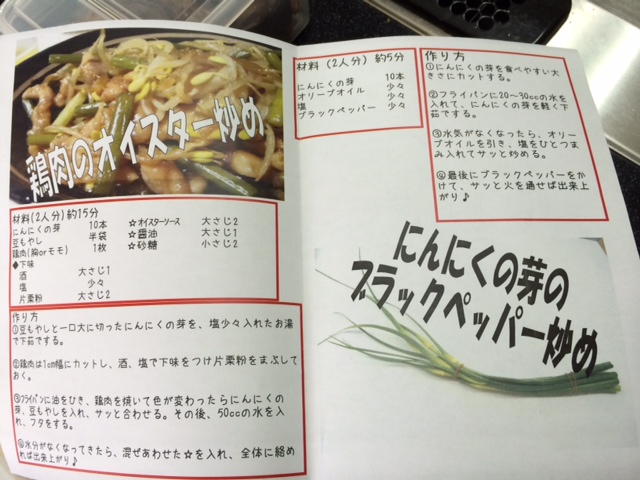 鶏肉のオイスター炒め
材料(2人分)約15分
にんにくの芽 10本 ☆オイスターソース 大さじ2
豆もやし 半袋 ☆醤油 大さじ1
鶏肉(胸orモモ) 1枚 ☆砂糖 小さじ2
◆下味
酒 大さじ1
塩 少々
片栗粉 大さじ2
作り方
①豆もやしと一口大に切ったにんにくの芽を、塩少々入れたお湯
で下茹でする。
②鶏肉は1cm幅にカットし、酒、塩で下味をつけ片栗粉をまぶして
おく。
③フライパンに油をひき、鶏肉を焼いて色が変わったらにんにくの
芽、豆もやしを入れ、サッと合わせる。その後、50ccの水を入
れ、フタをする。
④水分がなくなってきたら、混ぜあわせた☆を入れ、全体に絡め
れば出来上がり♪
材料(2人分) 約5分
にんにくの芽 10本
オリーブオイル 少々
塩 少々
ブラックペッパー 少々
作り方
①にんにくの芽を食べやすい大
きさにカットする。
②フライパンに20～30ccの水を
入れて、にんにくの芽を軽く下
茹でする。
③水気がなくなったら、オリー
ブオイルを引き、塩をひとつま
み入れてサッと炒める。
④最後にブラックペッパーをか
けて、サッと火を通せば出来上
がり♪
にんにくの芽の
ブラックペッパー炒め